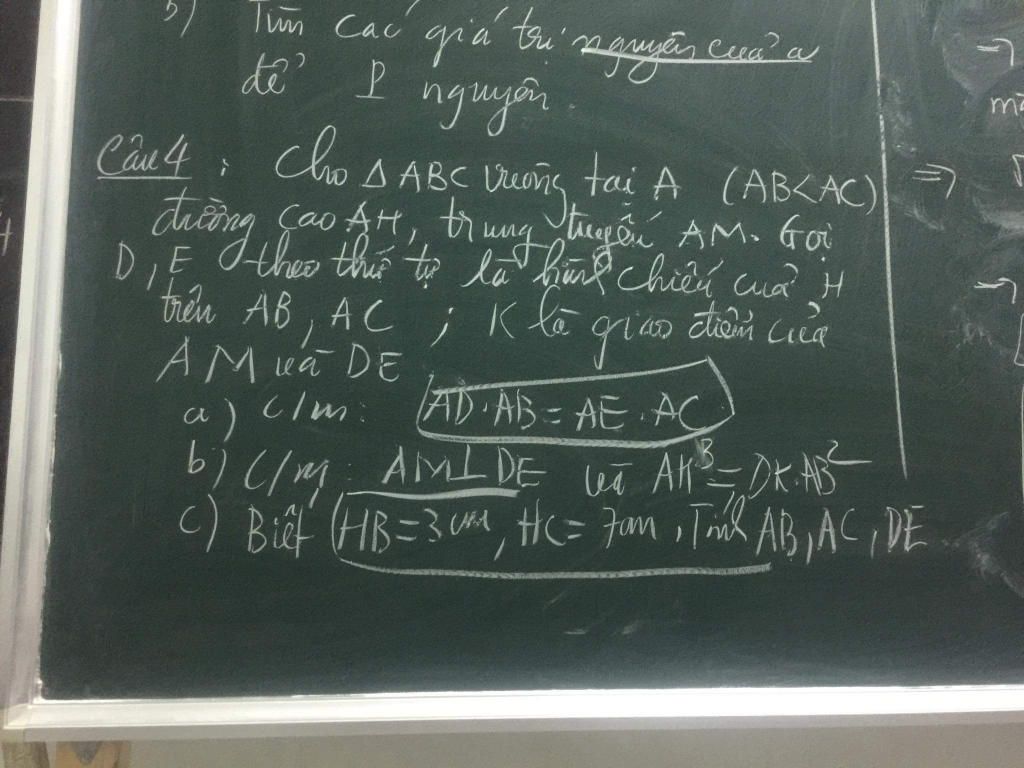 b) Tìm các giá trị nguyên của a
để P nguyên.
Câu 4 : Cho Δ ABC vuông tại A (AB<AC)
đường cao AH, trung tuyến AM. Gọi
D, E theo thứ tự là hình chiếu của H
trên AB, AC ; K là giao điểm của
AM và DE
a) C/m: AD.AB = AE.AC
b) C/m: AM⊥DE và AH³ = DK.AB²
c) Biết HB = 3cm, HC = 7cm, Tính AB, AC, DE
⇒
⇒
⇒